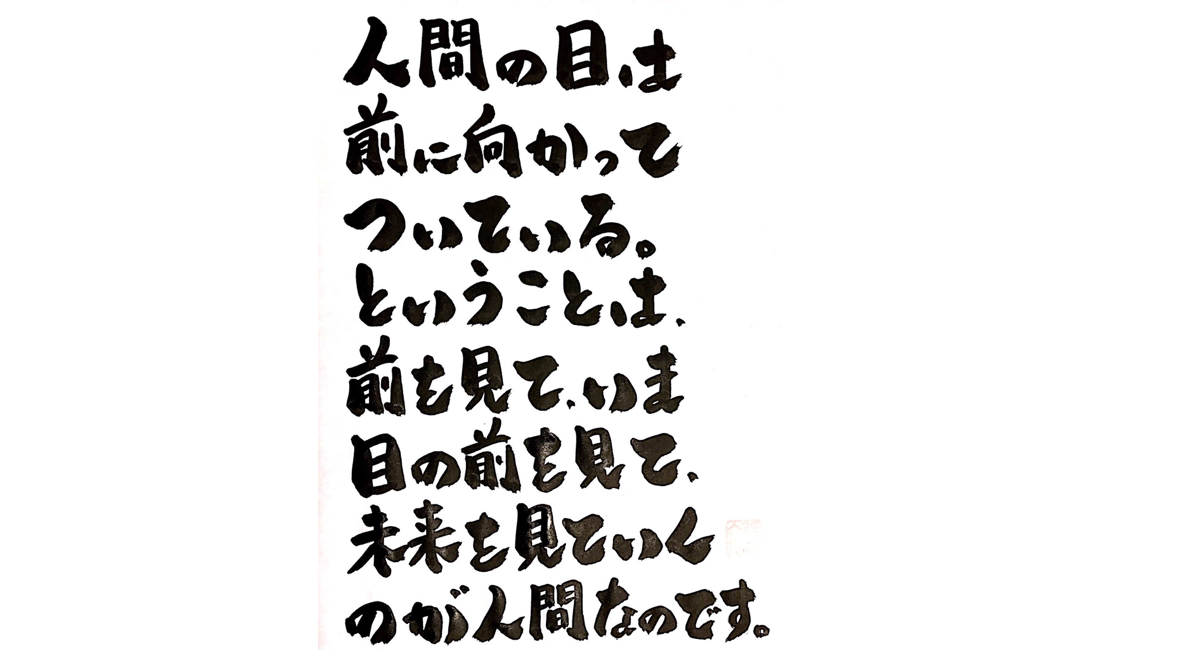 人間の目は
前に向かって
ついている。
ということは、
前を見て、いま
目の前を見て、
未来を見ていく
のが人間なのです。